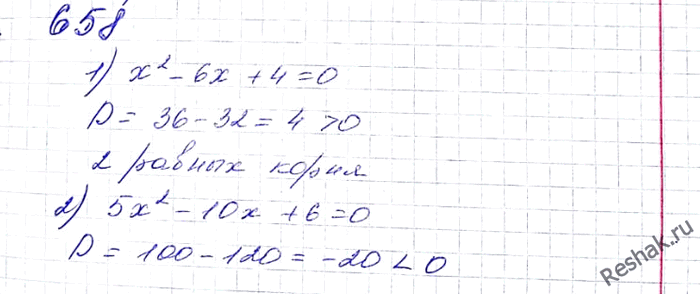 658
1) x² - 6x + 4 = 0
D = 36 - 32 = 4 > 0
2 равных корня
2) 5x² - 10x + 6 = 0
D = 100 - 120 = -20 < 0
Reshak.ru